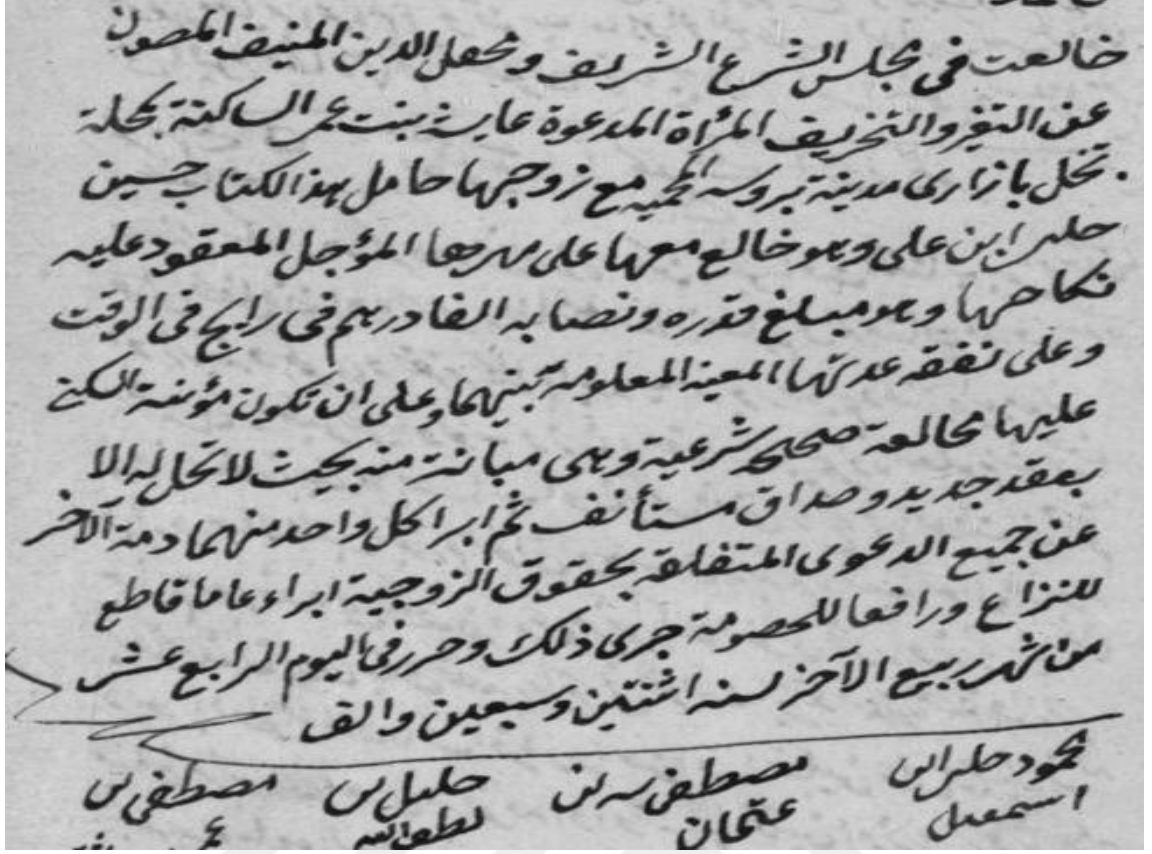 خالعت في مجلس الشرع الشريف ومحفل الدين المنيف المصون
عن التغير والتخريف المرأة المدعوة عايشه بنت عمر الساكنة بمحلة
نخل بازارى مدينة بروسه المحميه مع زوجها حامل هذا الكتاب حسين
ابن على وهو خالع معها على مهرها المؤجل المعقود عليه
نكاحها وهو مبلغ قدره ونصابه الفا درهم في رايج في الوقت
وعلى نفقه عدتها المعينه المعلومة بينهما وعلى ان تكون مؤنة السكنى
عليها مخالعة صحيحه شرعية وهى مبانة منه بحيث لا تحل له الا
بعقد جديد وصداق مستأنف ثم ابرا كل واحد منهما ذمة الآخر
عن جميع الدعوى المتعلقه بحقوق الزوجية ابراء عاما قاطع
للنزاع ورافعا للخصومة جرى ذلك وحرر في اليوم الرابع عشر
من شهر ربيع الآخر لسنه اثنتين وسبعين والف
محمود ابن مصطفى بن خليل بن مصطفى بن
اسمعيل عثمان لطف الله